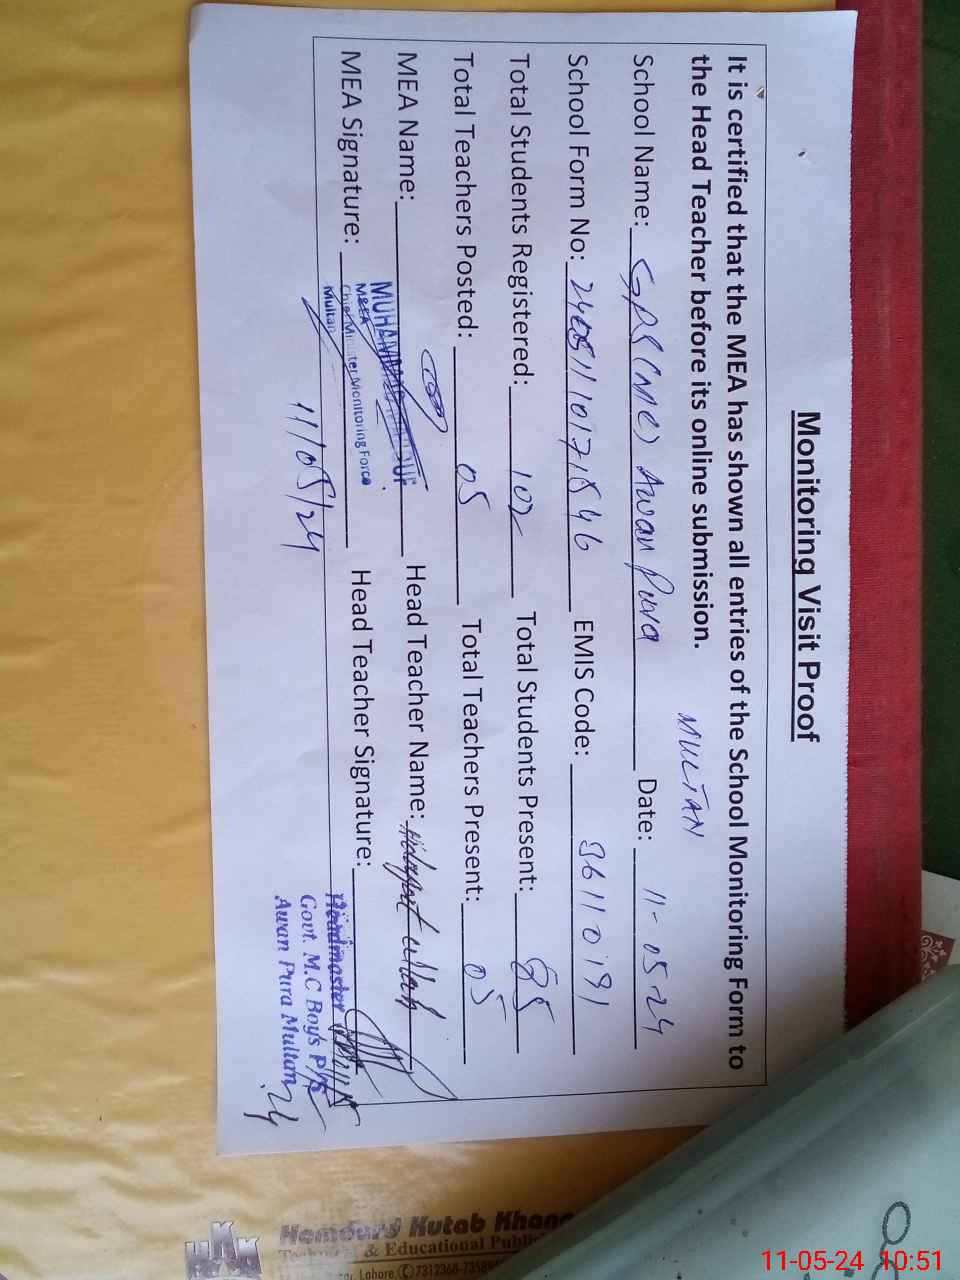 Monitoring Visit Proof
It is certified that the MEA has shown all entries of the School Monitoring Form to
the Head Teacher before its online submission.
MULTAN
School Name: GPS (MC) Awan Pura Date: 11-05-24
School Form No: 2405110171546 EMIS Code: 36110191
Total Students Registered: 102 Total Students Present: 85
Total Teachers Posted: 05 Total Teachers Present: 05
MEA Name: MUHAMMAD Head Teacher Name: Hidayat ullah
M&EA
Chief Minister Monitoring Force
Multan
MEA Signature: Head Teacher Signature:
11/05/24
Headmaster
Govt. M.C Boys P/S
Awan Pura Multan
24
HKK
Hamdard Kutab Khana
& Educational
Lahore
11-05-24 10:51